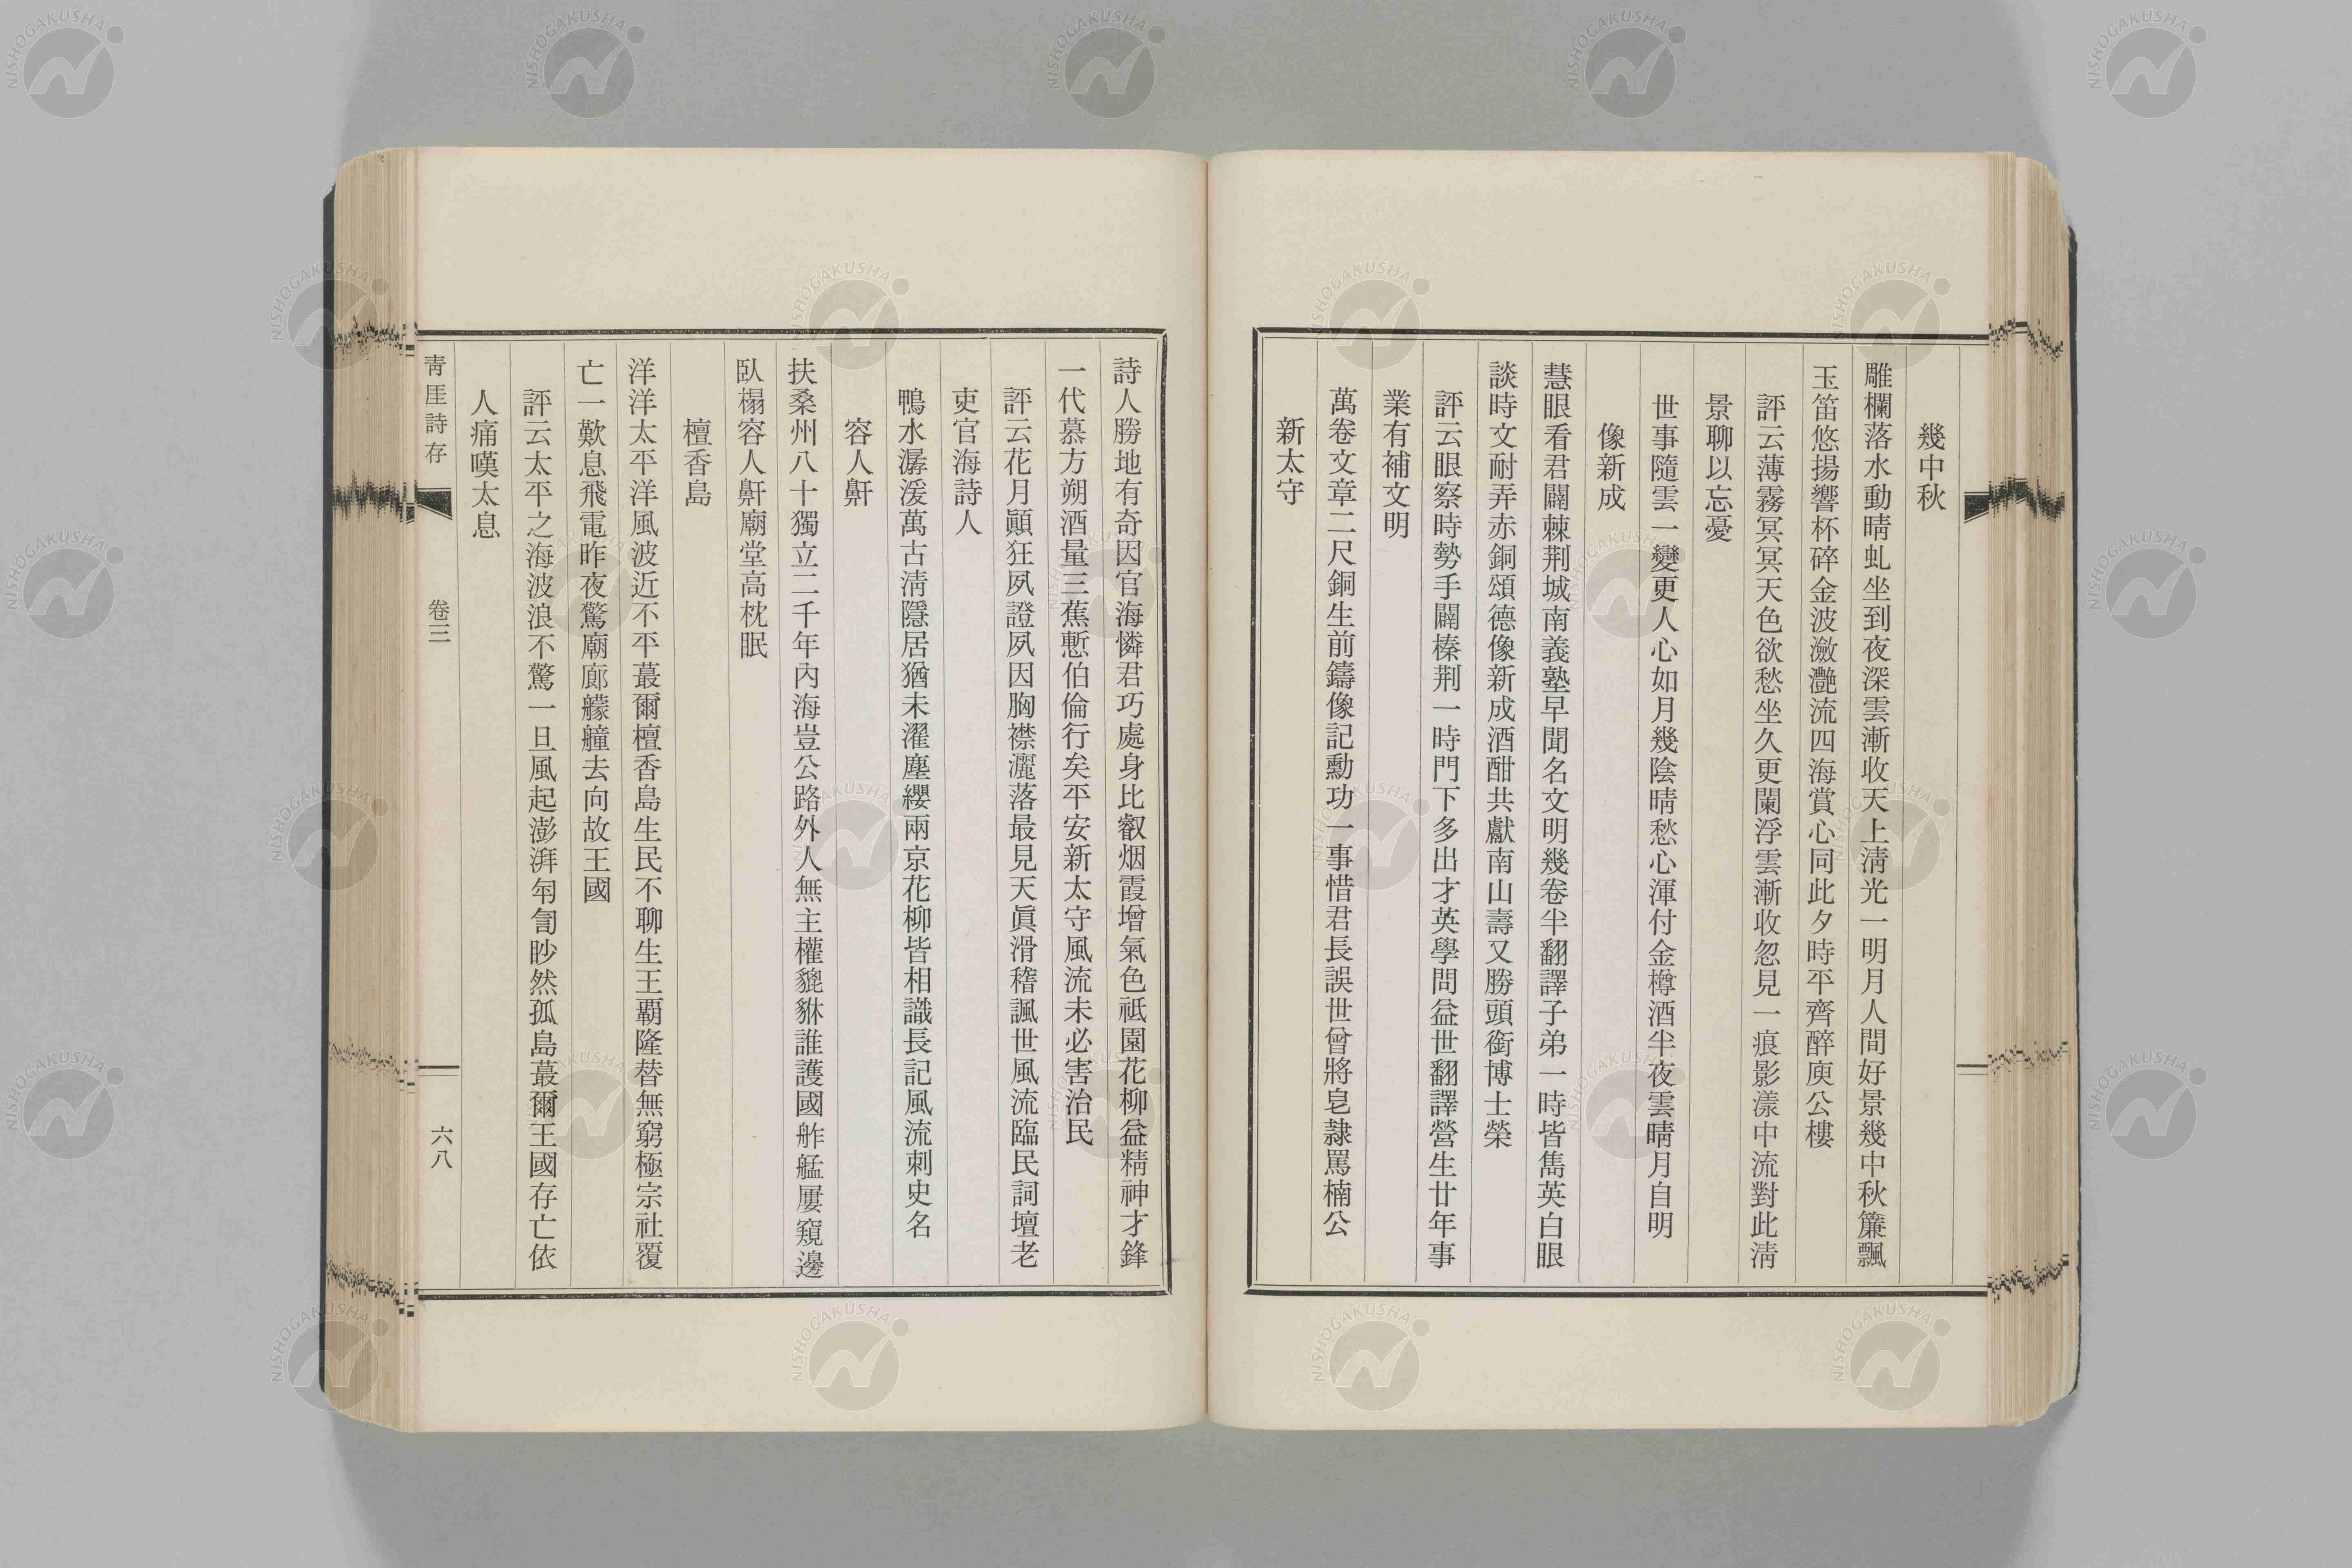 幾中秋
雕欄落水動晴虬坐到夜深雲漸收天上淸光一明月人間好景幾中秋簾飄
玉笛悠揚響杯碎金波瀲灩流四海賞心同此夕時平齊醉庾公樓
評云薄霧冥冥天色欲愁坐久更闌浮雲漸收忽見一痕影漾中流對此淸
景聊以忘憂
世事隨雲一變更人心如月幾陰晴愁心渾付金樽酒半夜雲晴月自明
像新成
慧眼看君闢棘荆城南義塾早聞名文明幾卷半翻譯子弟一時皆雋英白眼
談時文耐弄赤銅頌德像新成酒酣共獻南山壽又勝頭銜博士榮
評云眼察時勢手闢榛荆一時門下多出才英學問益世翻譯營生廿年事
業有補文明
萬卷文章二尺銅生前鑄像記勳功一事惜君長誤世曾將皂隸罵楠公
新太守
詩人勝地有奇因官海憐君巧處身比叡烟霞增氣色祇園花柳益精神才鋒
一代慕方朔酒量三蕉慙伯倫行矣平安新太守風流未必害治民
評云花月顚狂夙證夙因胸襟灑落最見天眞滑稽諷世風流臨民詞壇老
吏官海詩人
鴨水潺湲萬古淸隱居猶未濯塵纓兩京花柳皆相識長記風流刺史名
容人鼾
扶桑州八十獨立二千年內海豈公路外人無主權貔貅誰護國舴艋屢窺邊
臥榻容人鼾廟堂高枕眠
檀香島
洋洋太平洋風波近不平蕞爾檀香島生民不聊生王覇隆替無窮極宗社覆
亡一歎息飛電昨夜驚廟廊艨艟去向故王國
評云太平之海波浪不驚一旦風起澎湃匉訇眇然孤島蕞爾王國存亡依
人痛嘆太息
靑厓詩存
卷三
六八
NISHOGAKUSHA